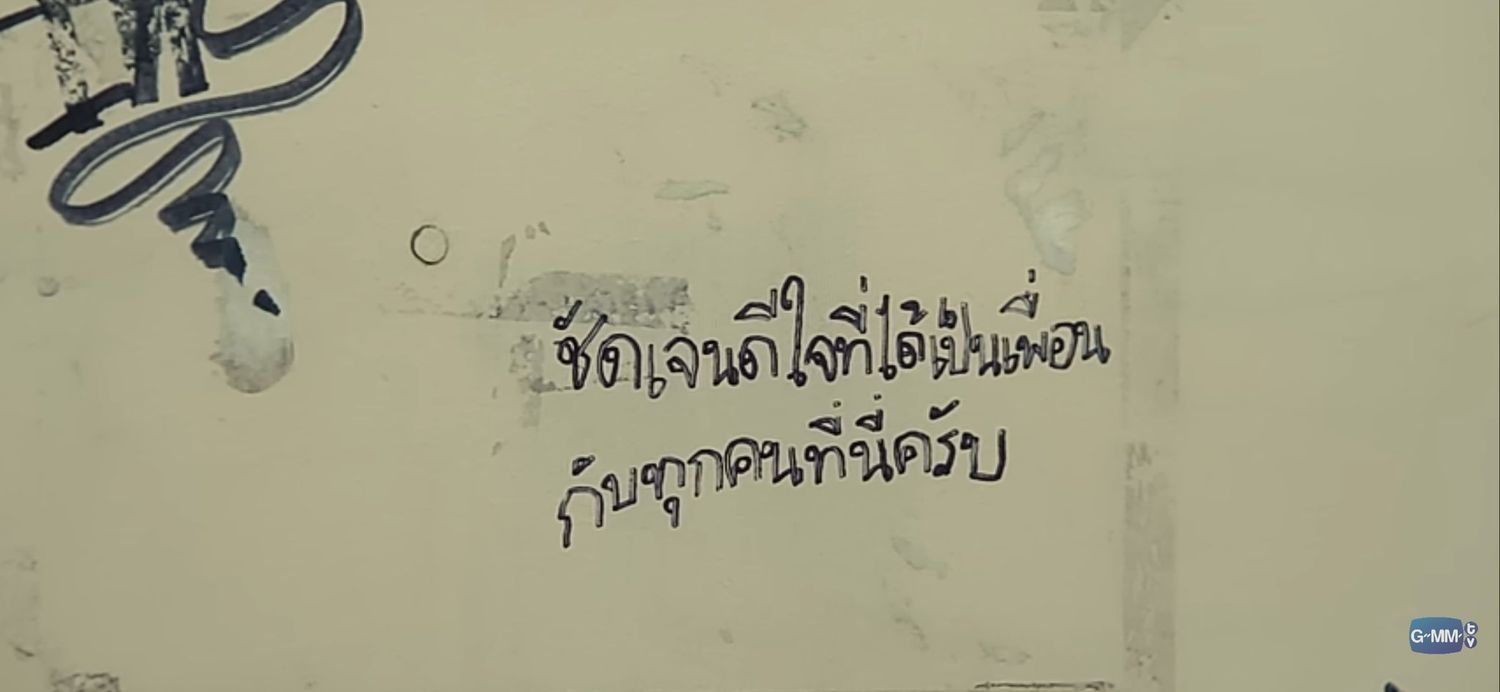 ชัดเจนดีใจที่ได้เป็นเพื่อน
กับทุกคนที่นี่ครับ
GMM
tv